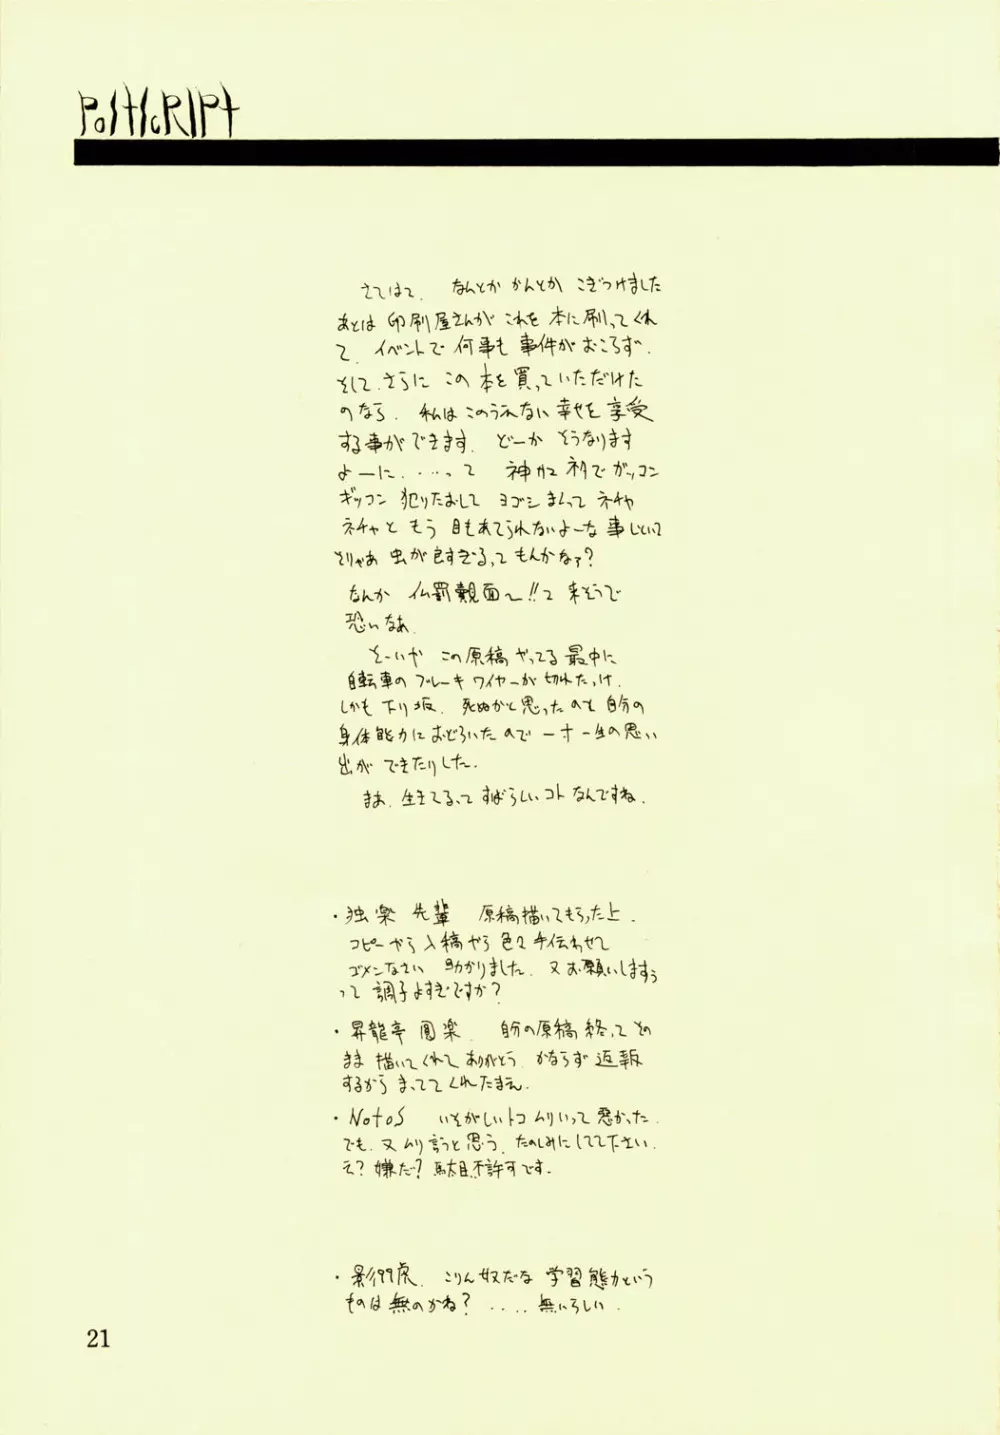 PostScRIPt
さてはて、なんとか かんとか こぎつけました
あとは 印刷屋さんが これを 本に刷ってくれ
て、イベントで 何事も 事件が おこらず、
そして、さらに この 本を 買っていただけた
のなら、私は このうえない 幸せを 享受
する事ができます。どーか そうなります
よーに、・・・って 神カミ ネ申で ガッコン
ギッコン 犯りたおして ヨゴシまくって ネチャ
ネチャと もう 目もあてられないよーな 事しといて
そりゃあ 虫が良すぎるって もんかなァ?
なんか 仏罰覿面〜!!って 来そうで
恐いなあ。
そーいや この原稿 やってる 最中に
自転車の ブレーキ ワイヤーが 切れたっけ、
しかも 下り坂、死ぬかと思ったのと 自分の
身体能力に おどろいたので 一寸 一生の思い
出が できたりした。
まあ、生きてるって すばらしいコト なんですね。
・独楽 先輩 原稿描いてもらった上、
コピーやら 入稿やら 色々 手伝わせて
ゴメンなさい 助かりました、又 お願いしますぅ
って 調子よすぎですか?
・昇龍亭 圓楽、自分の原稿 終って その
まま 描いてくれて ありがとう、かならず 返報
するから まっててくれたまえ。
・NotoS いそがしいトコ ムリいって 悪かった、
でも、又 ムリ言うと思う、たのしみにしてて下さい、
え? 嫌だ? 駄目、不許可です。
・影99虎、こりん奴だな 学習能力という
ものは 無いのかね? ・・・・ 無いらしい、
21